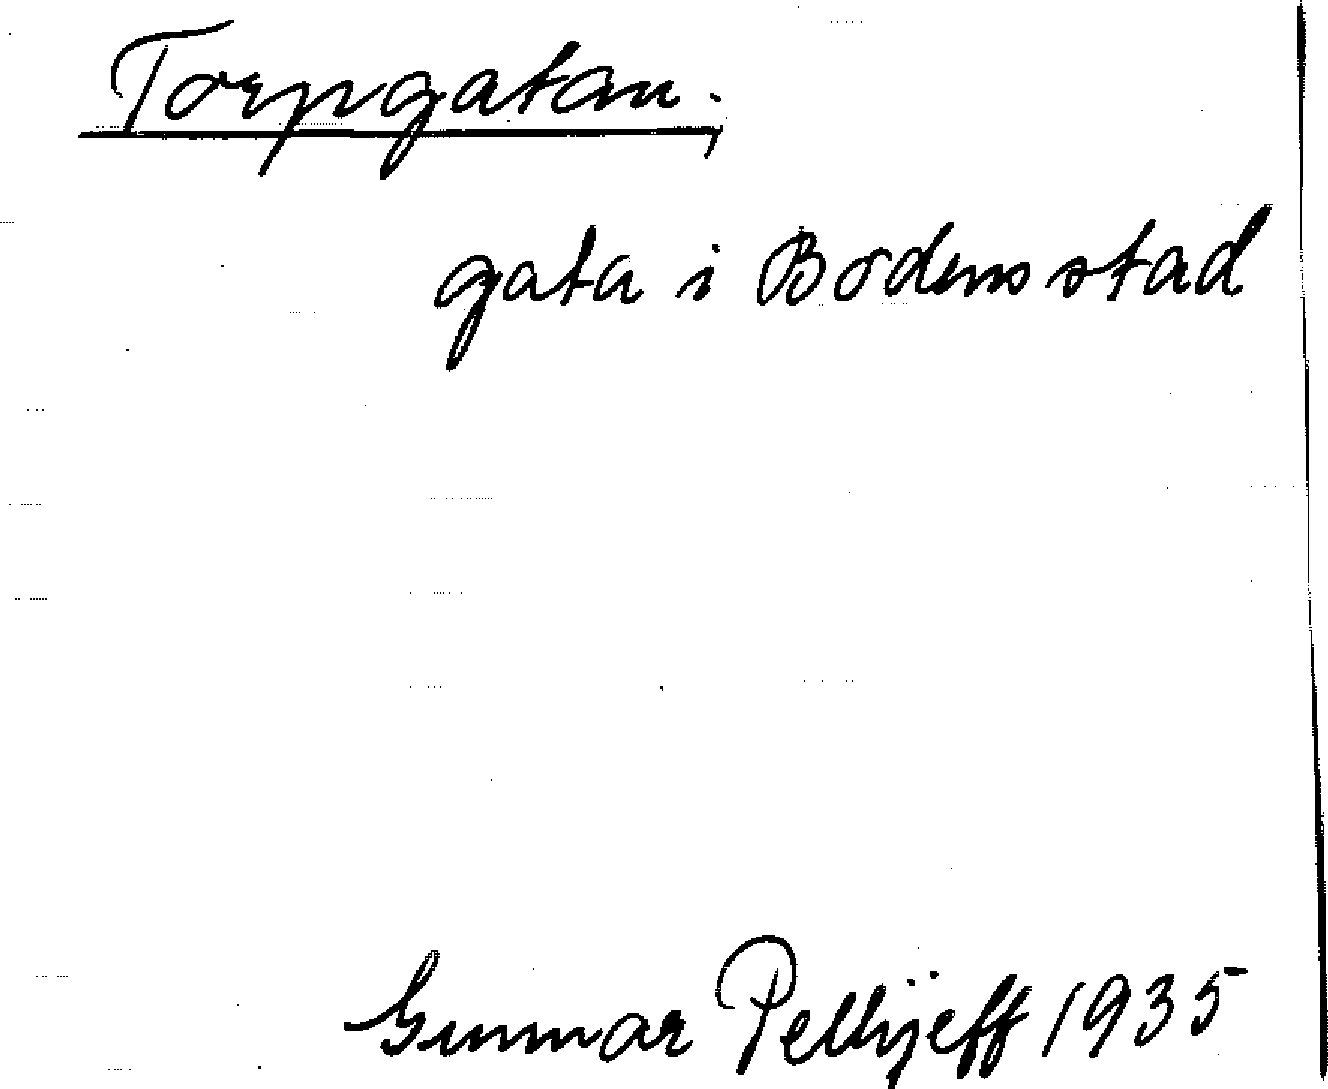 Torpgatan;
gata i Bodens stad
Gunnar Pellijeff 1935